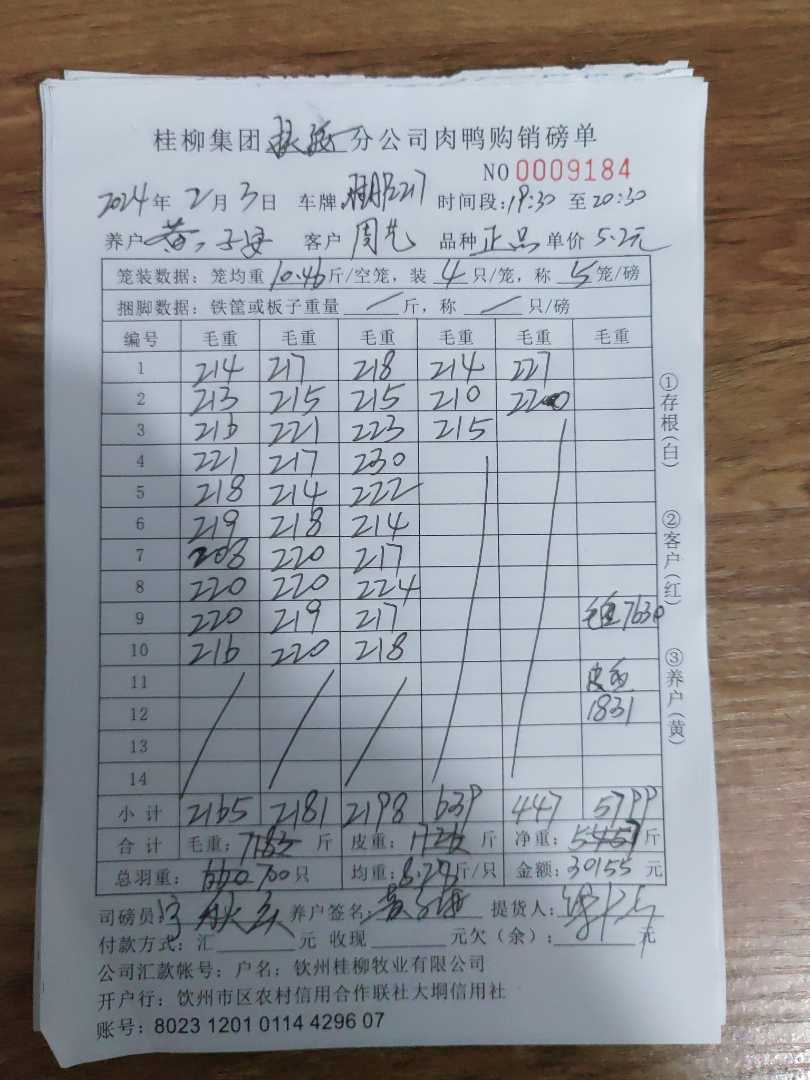 桂柳集团 分公司肉鸭购销磅单
NO 0009184
2024年2月3日 车牌: 217 时间段:19:30 至20:30
养户 黄 客户 周 品种 正品 单价 5.2元
笼装数据: 笼均重 10.46 斤/空笼, 装 4 只/笼, 称 5 笼/磅
捆脚数据: 铁筐或板子重量 / 斤, 称 / 只/磅
编号 毛重 毛重 毛重 毛重 毛重 毛重
1 214 217 218 214 227
2 213 215 215 210 220
3 216 221 223 215
4 221 217 230
5 218 214 222
6 219 218 214
7 208 220 217
8 220 220 224
9 220 219 217 毛重7630
10 216 220 218
11 皮重
12 1831
13
14
小计 2165 2181 2198 639 447 5799
合计 毛重: 7183 斤 皮重: 斤 净重: 5457 斤
总羽重: 660 700 只 均重: 8.27 斤/只 金额: 30155 元
司磅员: 养户签名 黄 提货人:
付款方式: 汇 元 收现 元欠(余): 元
公司汇款帐号: 户名: 钦州桂柳牧业有限公司
开户行: 钦州市区农村信用合作联社大垌信用社
账号: 8023 1201 0114 4296 07
①存根(白)
②客户(红)
③养户(黄)